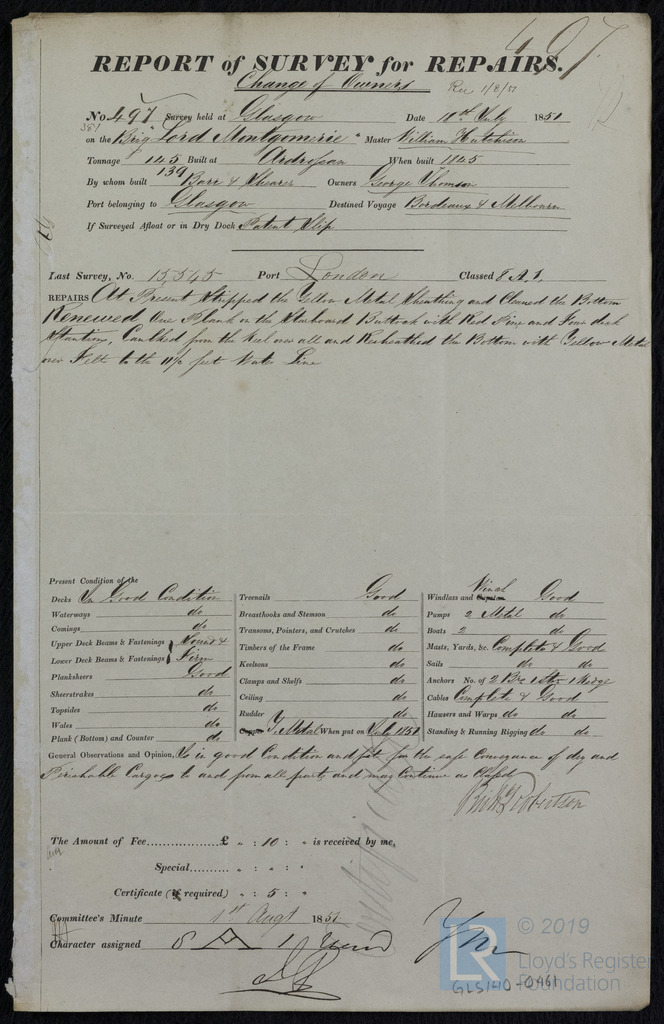 497
REPORT of SURVEY for REPAIRS.
Change of Owners Rec 1/8/51
No 497 Survey held at Glasgow Date 18th July 1851
on the Brig "Lord Montgomerie" Master William Hutchison
Tonnage 145 Built at Ardrossan When built 1845
139
By whom built Barr & Shearer Owners George Thomson
Port belonging to Glasgow Destined Voyage Bordeaux & Melbourn
If Surveyed Afloat or in Dry Dock Patent Slip
Last Survey, No. 15,545 Port London Classed 8 A 1.
REPAIRS At Present Stripped the Yellow Metal Sheathing and Cleaned the Bottom
Renewed One Plank on the Starboard Buttock with Red Pine and Four deck
Stantions, Caulked from the Keel over all and Resheathed the Bottom with Yellow Metal
over Felt to the 11½ feet Water Line
Present Condition of the
Decks In Good Condition
Waterways do
Comings do
Upper Deck Beams & Fastenings } Sound &
Lower Deck Beams & Fastenings } Firm
Planksheers Good
Sheerstrakes do
Topsides do
Wales do
Plank (Bottom) and Counter do
Treenails Good
Breasthooks and Stemson do
Transoms, Pointers, and Crutches do
Timbers of the Frame do
Keelsons do
Clamps and Shelfs do
Ceiling do
Rudder do
Copper Y. Metal When put on July 1851
Windlass and Capstan Winch Good
Pumps 2 Metal do
Boats 2 do
Masts, Yards, &c. Complete & Good
Sails do do
Anchors No. of 2 Bre 1 Str 1 Kedge
Cables Complete & Good
Hawsers and Warps do do
Standing & Running Rigging do do
General Observations and Opinion, Is in good Condition and fit for the safe Conveyance of dry and
Perishable Cargoes to and from all parts and may Continue as Classed
Robertson
The Amount of Fee.................£ " : 10 : " is received by me,
Special.......... " : " : "
Certificate (if required) " : 5 : "
Committee's Minute 1st Augt 1851
Character assigned 8 A 1
© 2019
LR Lloyd's Register
Foundation
GLS140-0461